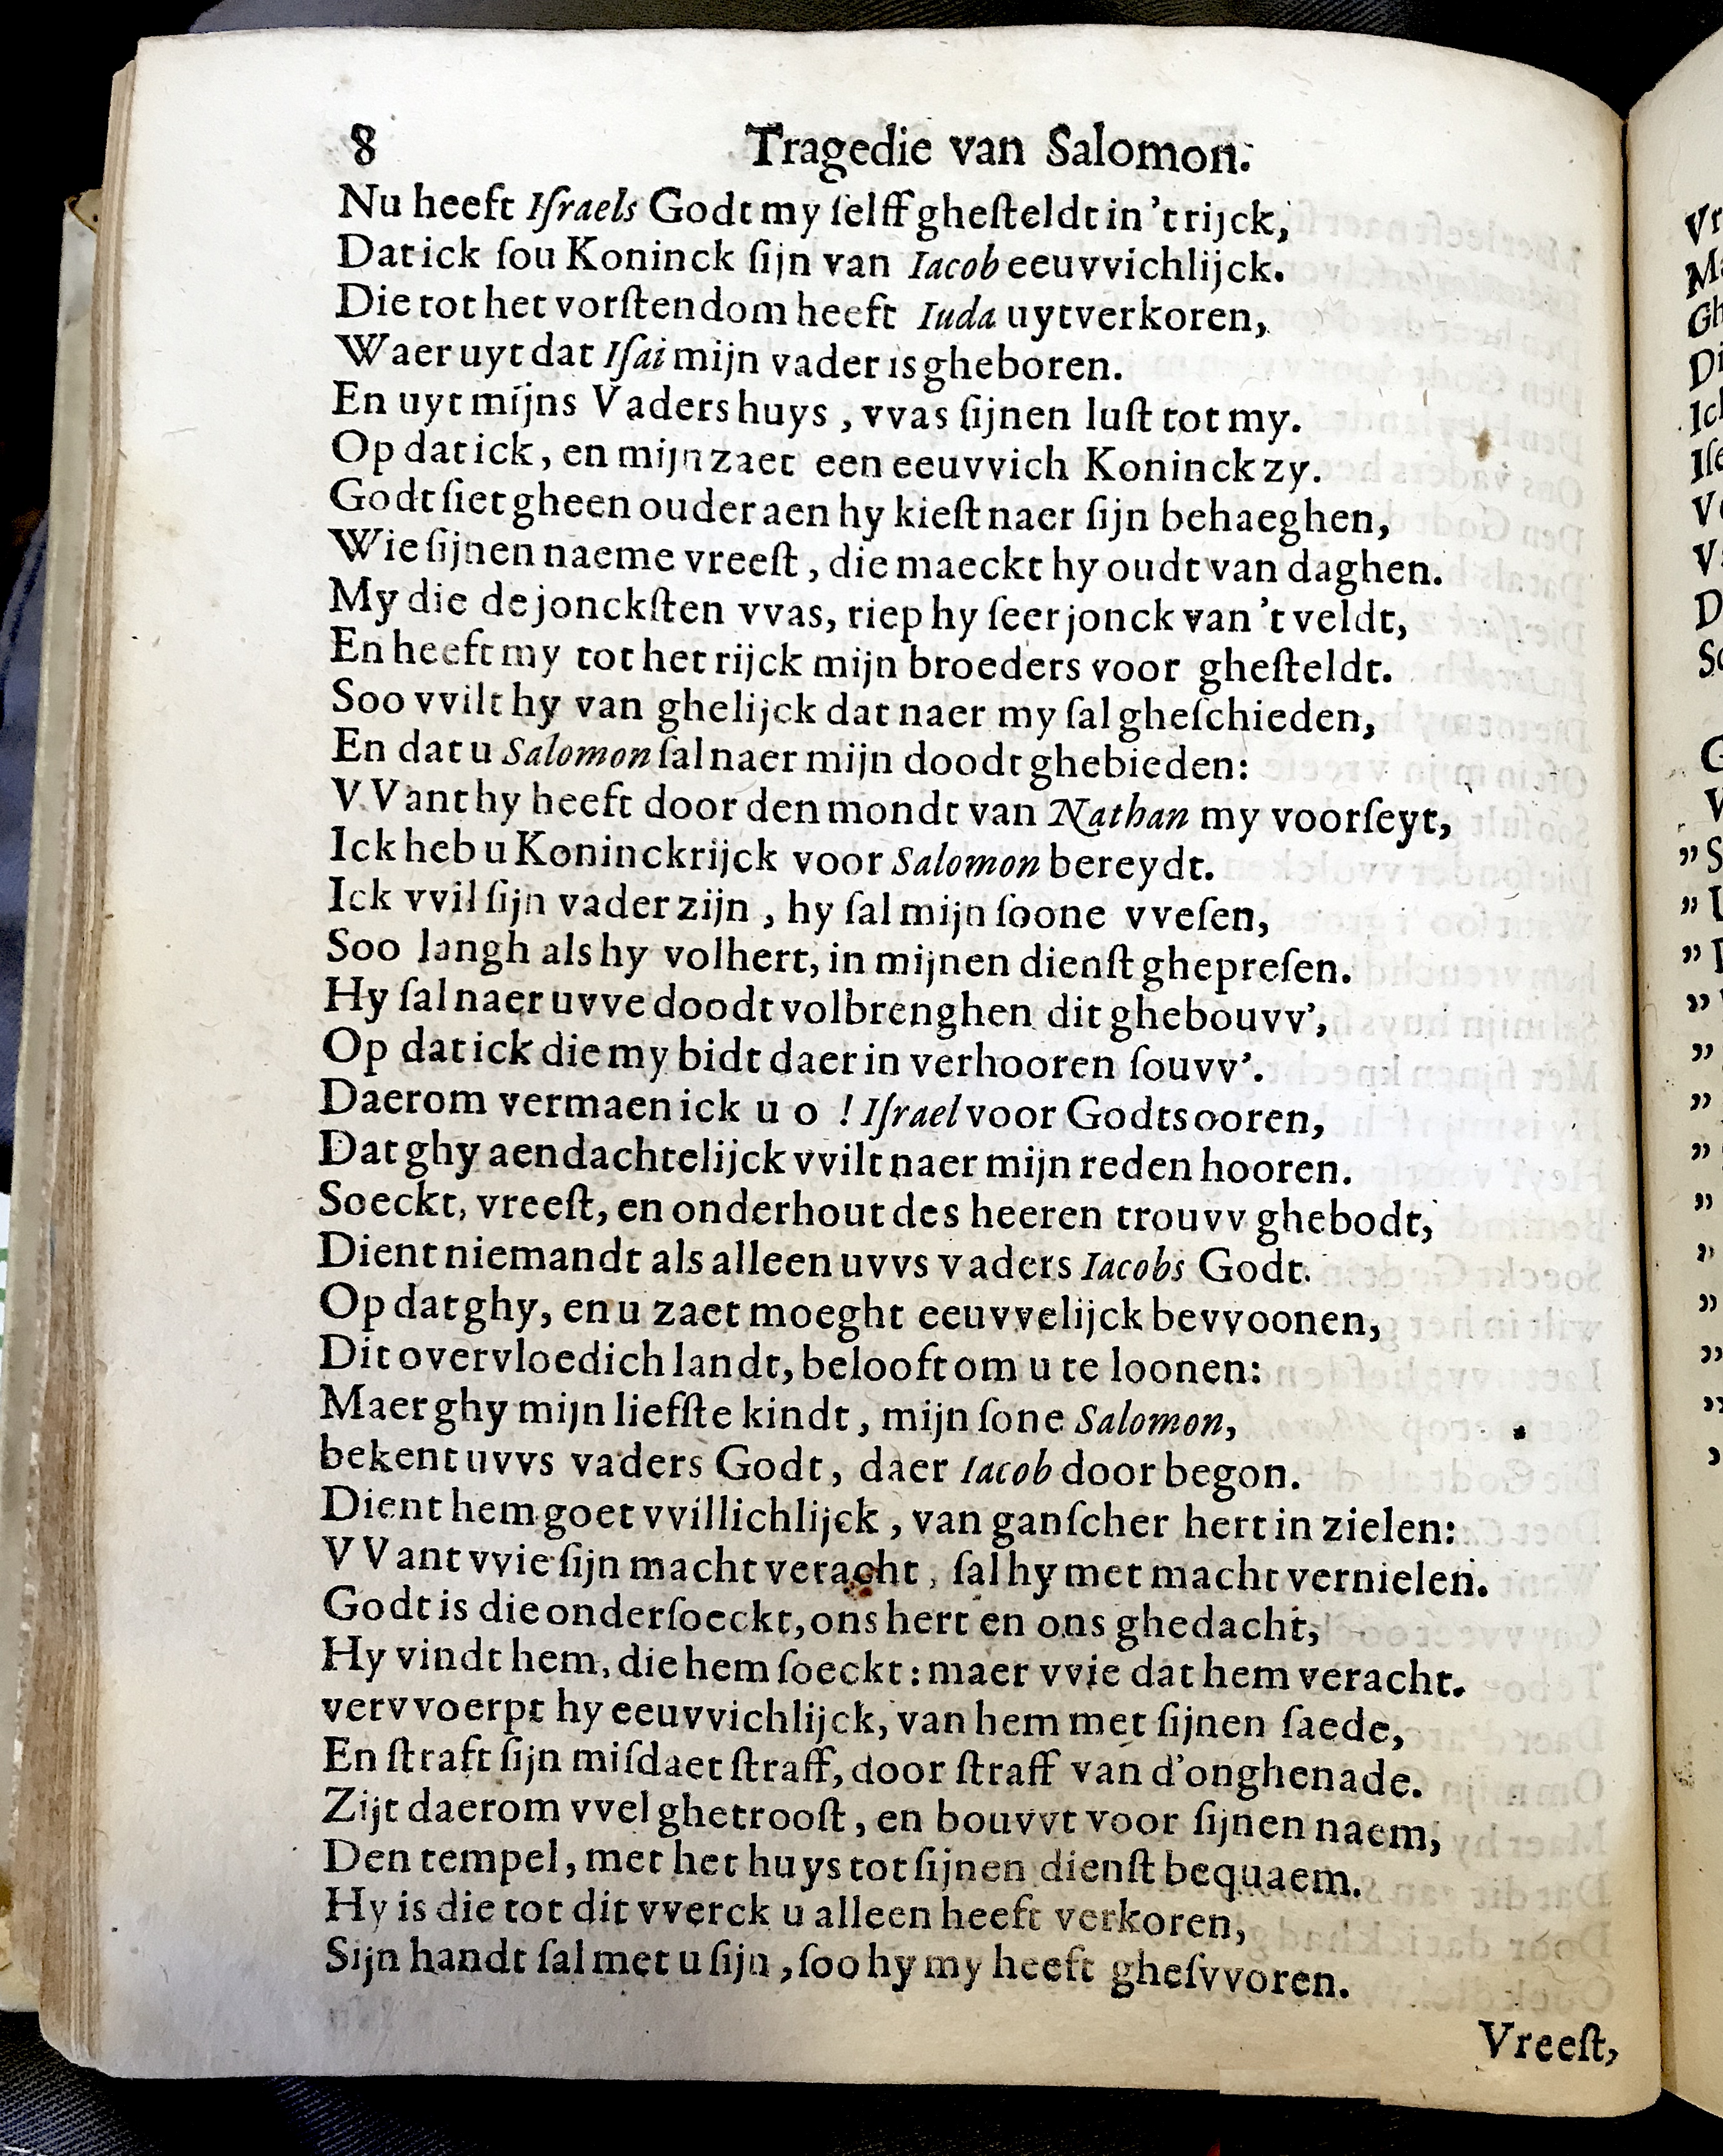 8 Tragedie van Salomon.
Nu heeft Iſraels Godt my ſelff gheſteldt in 't rijck,
Dat ick ſou Koninck ſijn van Iacob eeuvvichlijck.
Die tot het vorſtendom heeft Iuda uytverkoren,
Waer uyt dat Iſai mijn vader is gheboren.
En uyt mijns Vaders huys , vvas ſijnen luſt tot my.
Op dat ick , en mijn zaet een eeuvvich Koninck zy.
Godt ſiet gheen ouder aen hy kieſt naer ſijn behaeghen,
Wie ſijnen naeme vreeſt , die maeckt hy oudt van daghen.
My die de jonckſten vvas, riep hy ſeer jonck van 't veldt,
En heeft my tot het rijck mijn broeders voor gheſteldt.
Soo vvilt hy van ghelijck dat naer my ſal gheſchieden,
En dat u Salomon ſal naer mijn doodt ghebieden:
VVant hy heeft door den mondt van Nathan my voorſeyt,
Ick heb u Koninckrijck voor Salomon bereydt.
Ick vvil ſijn vader zijn , hy ſal mijn ſoone vveſen,
Soo langh als hy volhert, in mijnen dienſt ghepreſen.
Hy ſal naer uvve doodt volbrenghen dit ghebouvv',
Op dat ick die my bidt daer in verhooren ſouvv'.
Daerom vermaen ick u o ! Iſrael voor Godts ooren,
Dat ghy aendachtelijck vvilt naer mijn reden hooren.
Soeckt, vreeſt, en onderhout des heeren trouvv ghebodt,
Dient niemandt als alleen uvvs vaders Iacobs Godt.
Op dat ghy, en u zaet moeght eeuvvelijck bevvoonen,
Dit overvloedich landt, belooft om u te loonen:
Maer ghy mijn liefſte kindt , mijn ſone Salomon,
bekent uvvs vaders Godt , daer Iacob door begon.
Dient hem goet vvillichlijck , van ganſcher hert in zielen:
VVant vvie ſijn macht veracht , ſal hy met macht vernielen.
Godt is die onderſoeckt, ons hert en ons ghedacht,
Hy vindt hem, die hem ſoeckt : maer vvie dat hem veracht.
vervvoerpt hy eeuvvichlijck, van hem met ſijnen ſaede,
En ſtraft ſijn miſdaet ſtraff, door ſtraff van d'onghenade.
Zijt daerom vvel ghetrooſt , en bouvvt voor ſijnen naem,
Den tempel, met het huys tot ſijnen dienſt bequaem.
Hy is die tot dit vverck u alleen heeft verkoren,
Sijn handt ſal met u ſijn , ſoo hy my heeft gheſvvoren.
Vreeſt,